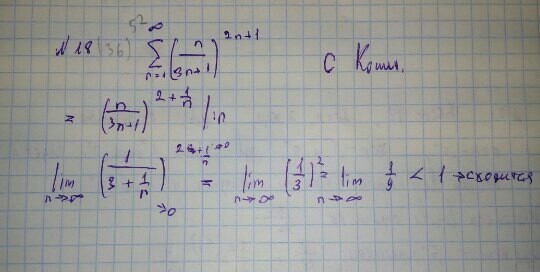 5²
N 18 (36) ∑_{n=1}^{∞} (n/(3n+1))^{2n+1} С Коши.
= (n/(3n+1))^{2+1/n} | in
lim_{n→∞} (1/(3+1/n))^{2+1/n→0} →0 = lim_{n→∞} (1/3)^2 = lim_{n→∞} 1/9 < 1 → сходится